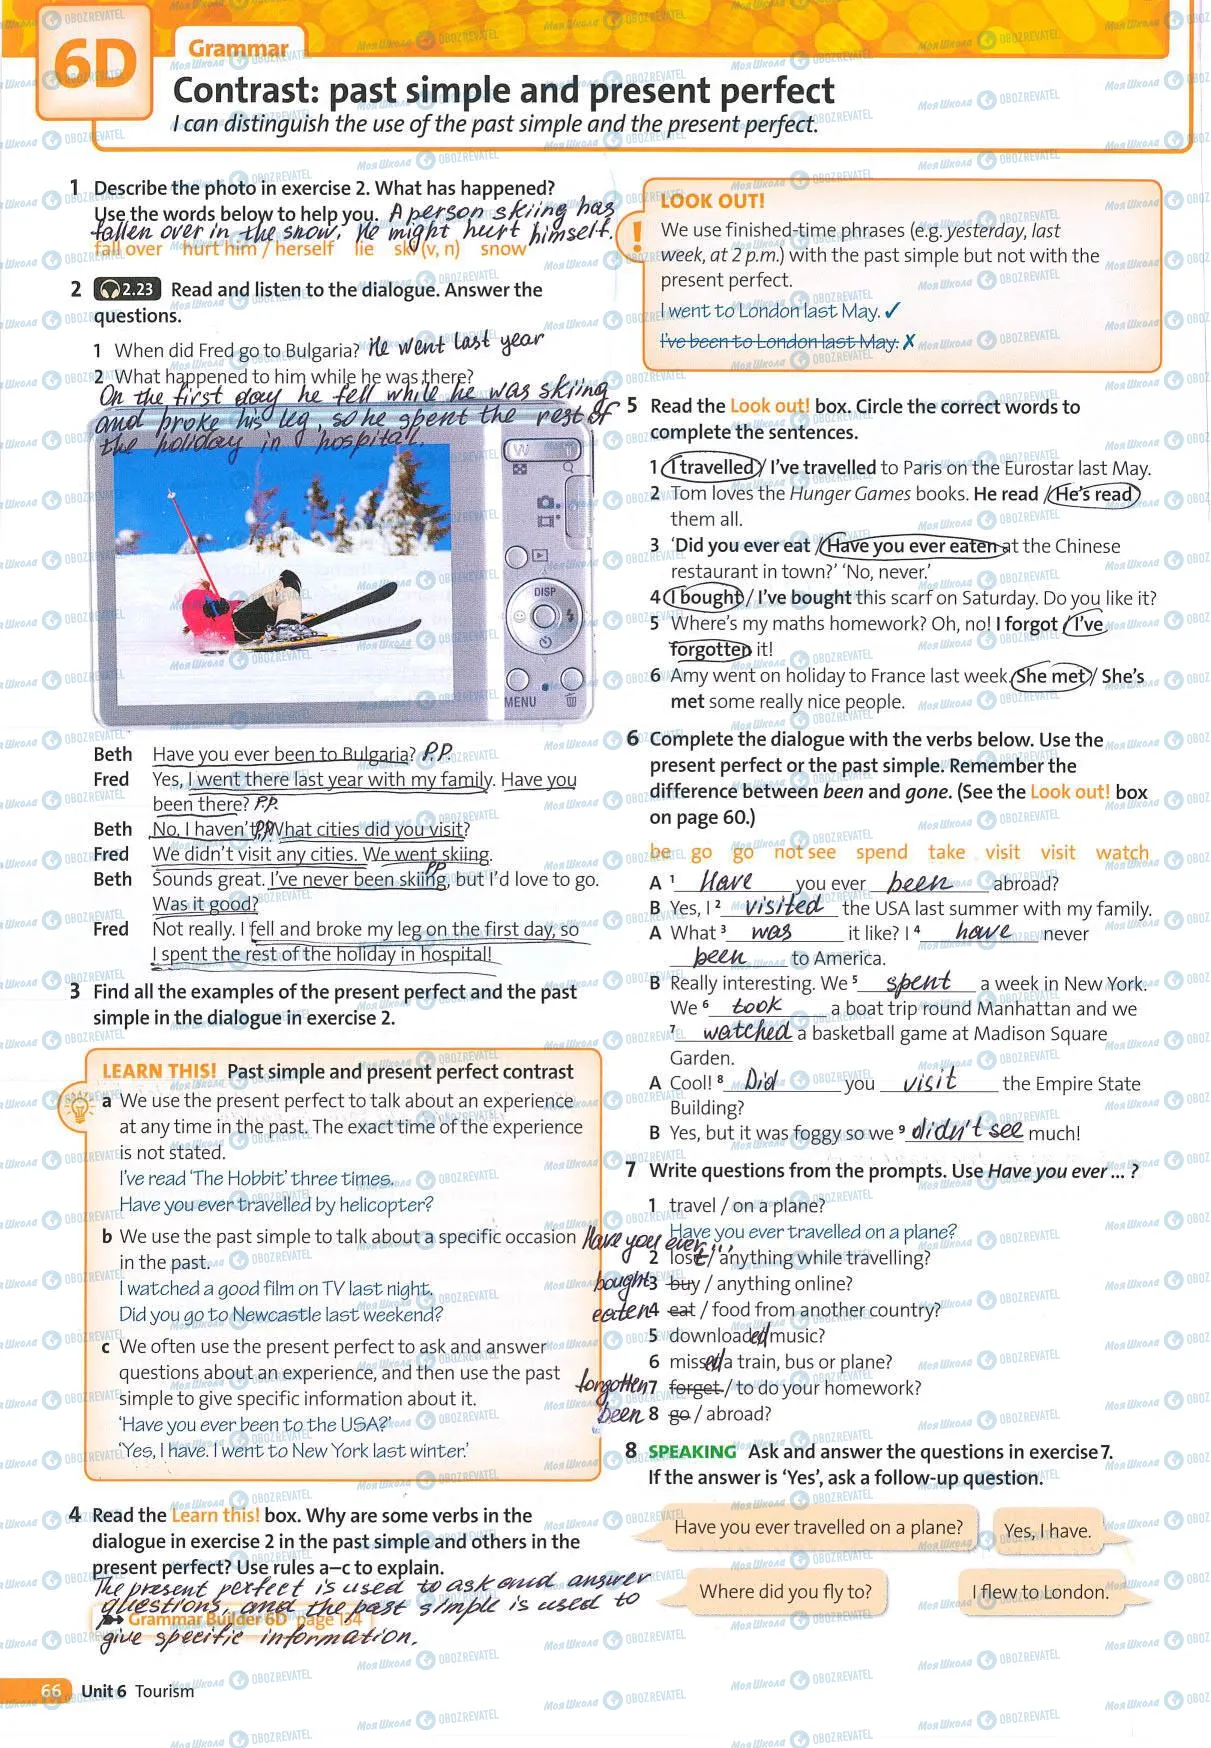 6D
Grammar
Contrast: past simple and present perfect
I can distinguish the use of the past simple and the present perfect.
1 Describe the photo in exercise 2. What has happened?
Use the words below to help you. A person skiing has
fallen over in the snow. He might hurt himself.
fall over hurt him / herself lie ski (v, n) snow
2 2.23 Read and listen to the dialogue. Answer the
questions.
1 When did Fred go to Bulgaria? He went last year
2 What happened to him while he was there?
On the first day he fell while he was skiing
and broke his leg, so he spent the rest of
the holiday in hospital.
W T
DISP
MENU
Beth Have you ever been to Bulgaria? P.P.
Fred Yes, I went there last year with my family. Have you
been there? P.P.
Beth No, I haven't. P.P. What cities did you visit?
Fred We didn't visit any cities. We went skiing.
Beth Sounds great. I've never been skiing, but I'd love to go. PP
Was it good?
Fred Not really. I fell and broke my leg on the first day, so
I spent the rest of the holiday in hospital!
3 Find all the examples of the present perfect and the past
simple in the dialogue in exercise 2.
LEARN THIS! Past simple and present perfect contrast
a We use the present perfect to talk about an experience
at any time in the past. The exact time of the experience
is not stated.
I've read 'The Hobbit' three times.
Have you ever travelled by helicopter?
b We use the past simple to talk about a specific occasion
in the past.
I watched a good film on TV last night.
Did you go to Newcastle last weekend?
c We often use the present perfect to ask and answer
questions about an experience, and then use the past
simple to give specific information about it.
'Have you ever been to the USA?'
'Yes, I have. I went to New York last winter.'
4 Read the Learn this! box. Why are some verbs in the
dialogue in exercise 2 in the past simple and others in the
present perfect? Use rules a–c to explain.
The present perfect is used to ask and answer
questions, and the past simple is used to
Grammar Builder 6D page 134
give specific information.
66 Unit 6 Tourism
LOOK OUT!
! We use finished-time phrases (e.g. yesterday, last
week, at 2 p.m.) with the past simple but not with the
present perfect.
I went to London last May. ✓
I've been to London last May. ✗
5 Read the Look out! box. Circle the correct words to
complete the sentences.
1 I travelled / I've travelled to Paris on the Eurostar last May.
2 Tom loves the Hunger Games books. He read / He's read
them all.
3 'Did you ever eat / Have you ever eaten at the Chinese
restaurant in town?' 'No, never.'
4 I bought / I've bought this scarf on Saturday. Do you like it?
5 Where's my maths homework? Oh, no! I forgot / I've
forgotten it!
6 Amy went on holiday to France last week. She met / She's
met some really nice people.
6 Complete the dialogue with the verbs below. Use the
present perfect or the past simple. Remember the
difference between been and gone. (See the Look out! box
on page 60.)
be go go not see spend take visit visit watch
A 1 Have you ever been abroad?
B Yes, I 2 visited the USA last summer with my family.
A What 3 was it like? I 4 have never
been to America.
B Really interesting. We 5 spent a week in New York.
We 6 took a boat trip round Manhattan and we
7 watched a basketball game at Madison Square
Garden.
A Cool! 8 Did you visit the Empire State
Building?
B Yes, but it was foggy so we 9 didn't see much!
7 Write questions from the prompts. Use Have you ever ... ?
1 travel / on a plane?
Have you ever travelled on a plane?
Have you ever...
2 lost / anything while travelling?
bought 3 buy / anything online?
eaten 4 eat / food from another country?
5 downloaded music?
6 missed a train, bus or plane?
forgotten 7 forget / to do your homework?
been 8 go / abroad?
8 SPEAKING Ask and answer the questions in exercise 7.
If the answer is 'Yes', ask a follow-up question.
Have you ever travelled on a plane?
Yes, I have.
Where did you fly to?
I flew to London.
Моя Школа OBOZREVATEL